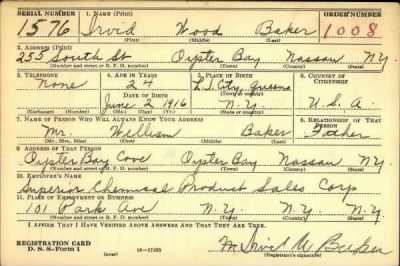 SERIAL NUMBER 1. NAME (Print) ORDER NUMBER
1576 Irvid Wood Baker 1008
(First) (Middle) (Last)
2. ADDRESS (Print)
255 South St Oyster Bay Nassau N.Y.
(Number and street or R. F. D. number) (Town) (County) (State)
3. TELEPHONE 4. AGE IN YEARS 5. PLACE OF BIRTH 6. COUNTRY OF CITIZENSHIP
None 24 L.I. City Queens
DATE OF BIRTH (Town or county)
June 2 1916 N.Y. U.S.A.
(Exchange) (Number) (Mo.) (Day) (Yr.) (State or country)
7. NAME OF PERSON WHO WILL ALWAYS KNOW YOUR ADDRESS 8. RELATIONSHIP OF THAT PERSON
Mr. William Baker Father
(Mr., Mrs., Miss) (First) (Middle) (Last)
9. ADDRESS OF THAT PERSON
Oyster Bay Cove Oyster Bay Nassau N.Y.
(Number and street or R. F. D. number) (Town) (County) (State)
10. EMPLOYER'S NAME
Superior Chemical Product Sales Corp
11. PLACE OF EMPLOYMENT OR BUSINESS
101 Park Ave N.Y. N.Y. N.Y.
(Number and street or R. F. D. number) (Town) (County) (State)
I AFFIRM THAT I HAVE VERIFIED ABOVE ANSWERS AND THAT THEY ARE TRUE.
REGISTRATION CARD
D. S. S. Form 1 (over) 16-17105 Baker
(Registrant's signature)